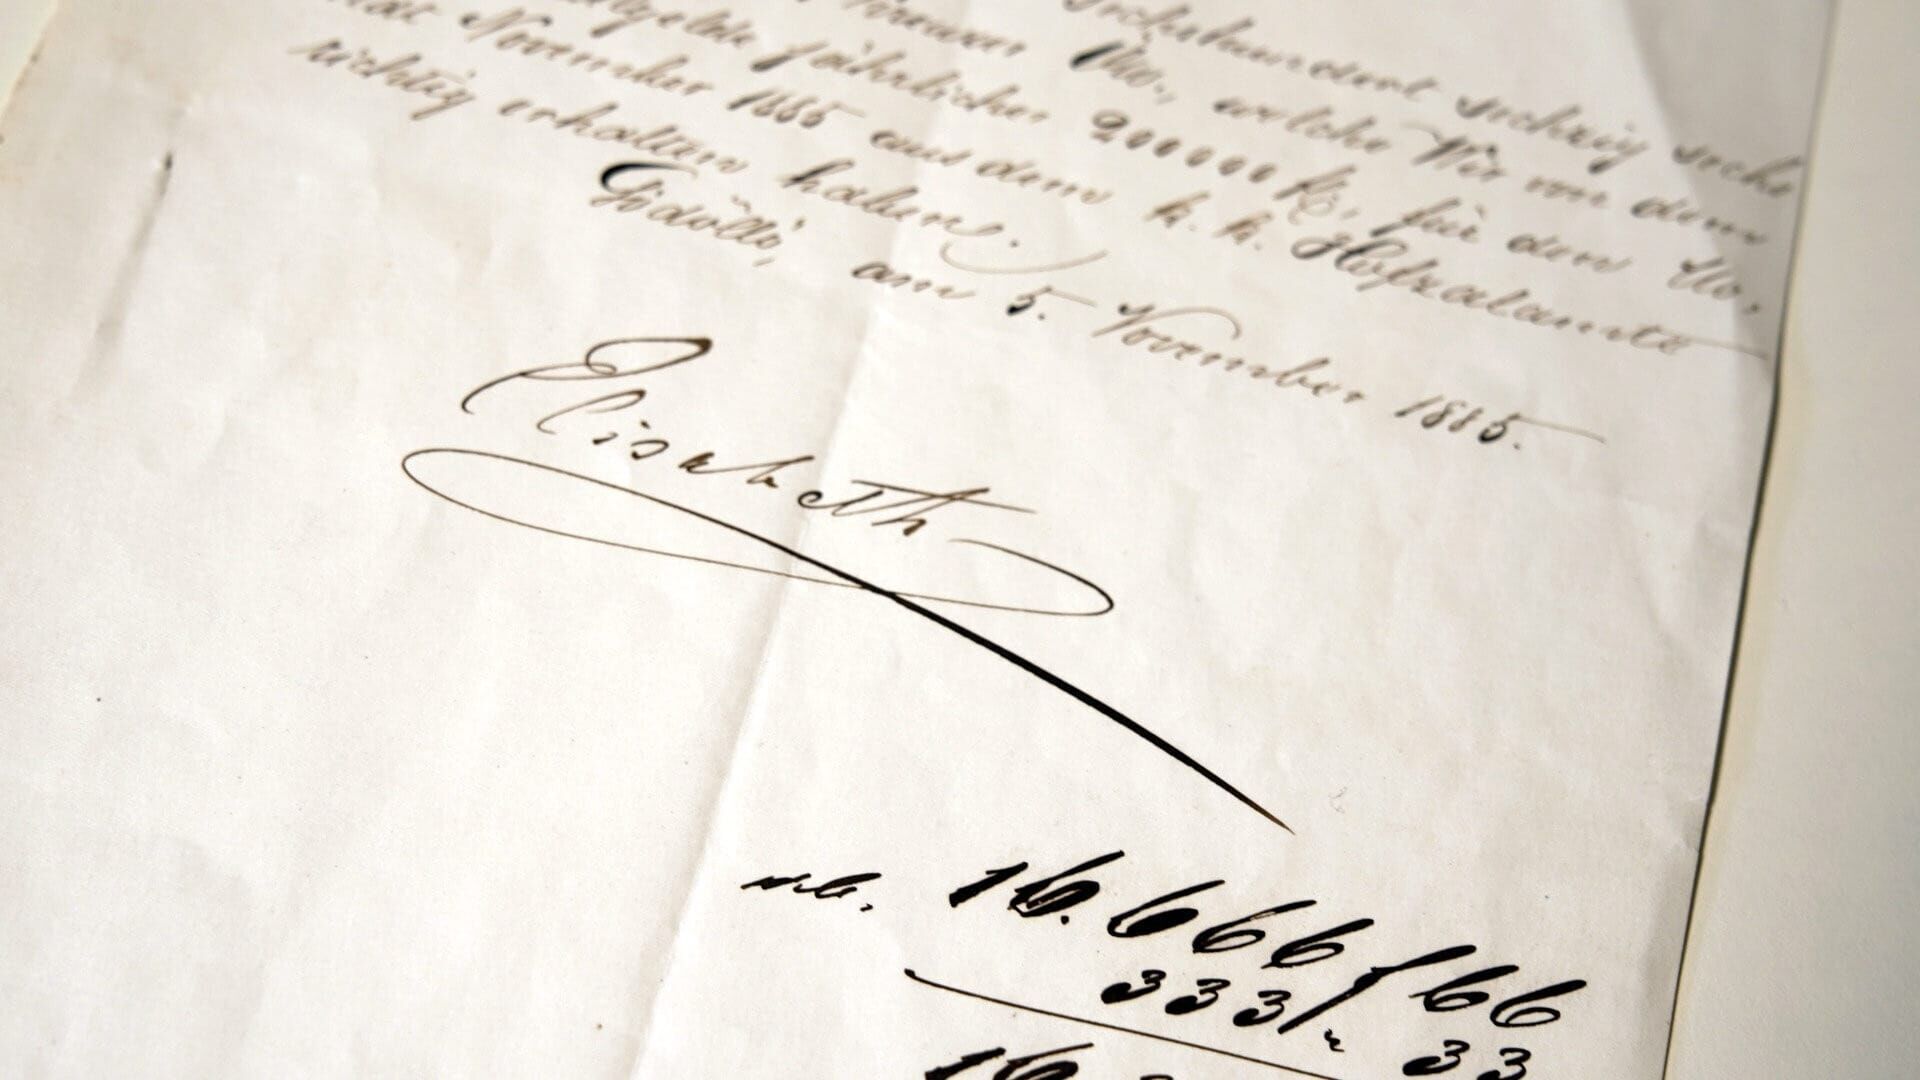 Sechshundert sechzig sechs
Kreuzer Öw., welche Wir von dem
jährlicher 200000 fl. für den Mo,
nat November 1885 aus dem k. k. Hofzalamte
richtig erhalten haben.
Gödöllö, am 5. November 1885.
Elisabeth
16.666 f 66
333 33
16